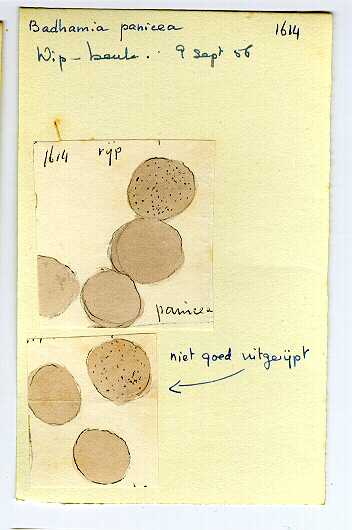 Badhamia panicea 1614
Wip – beuk. 9 Sept 56
1614 rijp
panicea
niet goed uitgerijpt